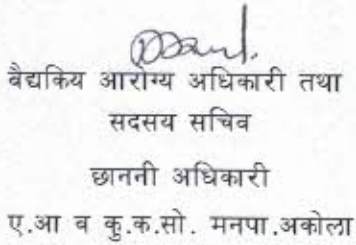 बैद्यकिय आरोग्य अधिकारी तथा
सदसय सचिव
छाननी अधिकारी
ए.आ व कु.क.सो. मनपा.अकोला